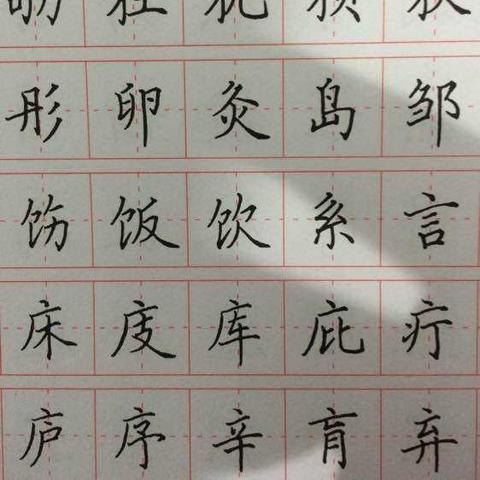 彤 卵 灸 岛 邹
饬 饭 饮 系 言
床 庋 库 庇 疔
庐 序 辛 肓 弃